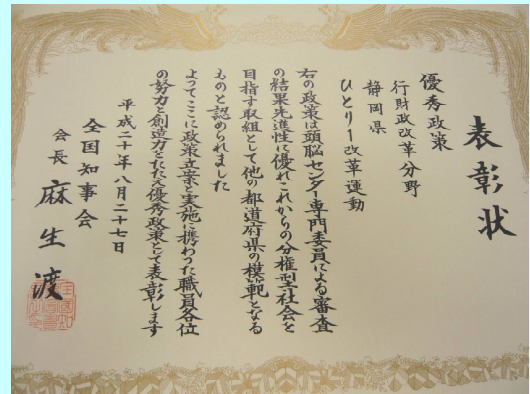 表彰状
優秀政策
行財政改革分野
静岡県
ひとり1改革運動
右の政策は頭脳センター専門委員による審査
の結果先進性に優れこれからの分権型社会を
目指す取組として他の都道府県の模範となる
ものと認められました
よってここに政策立案と実施に携わった職員各位
の努力と創造力をたたえ優秀政策として表彰します
平成二十年八月二十七日
全国知事会
会長 麻生渡